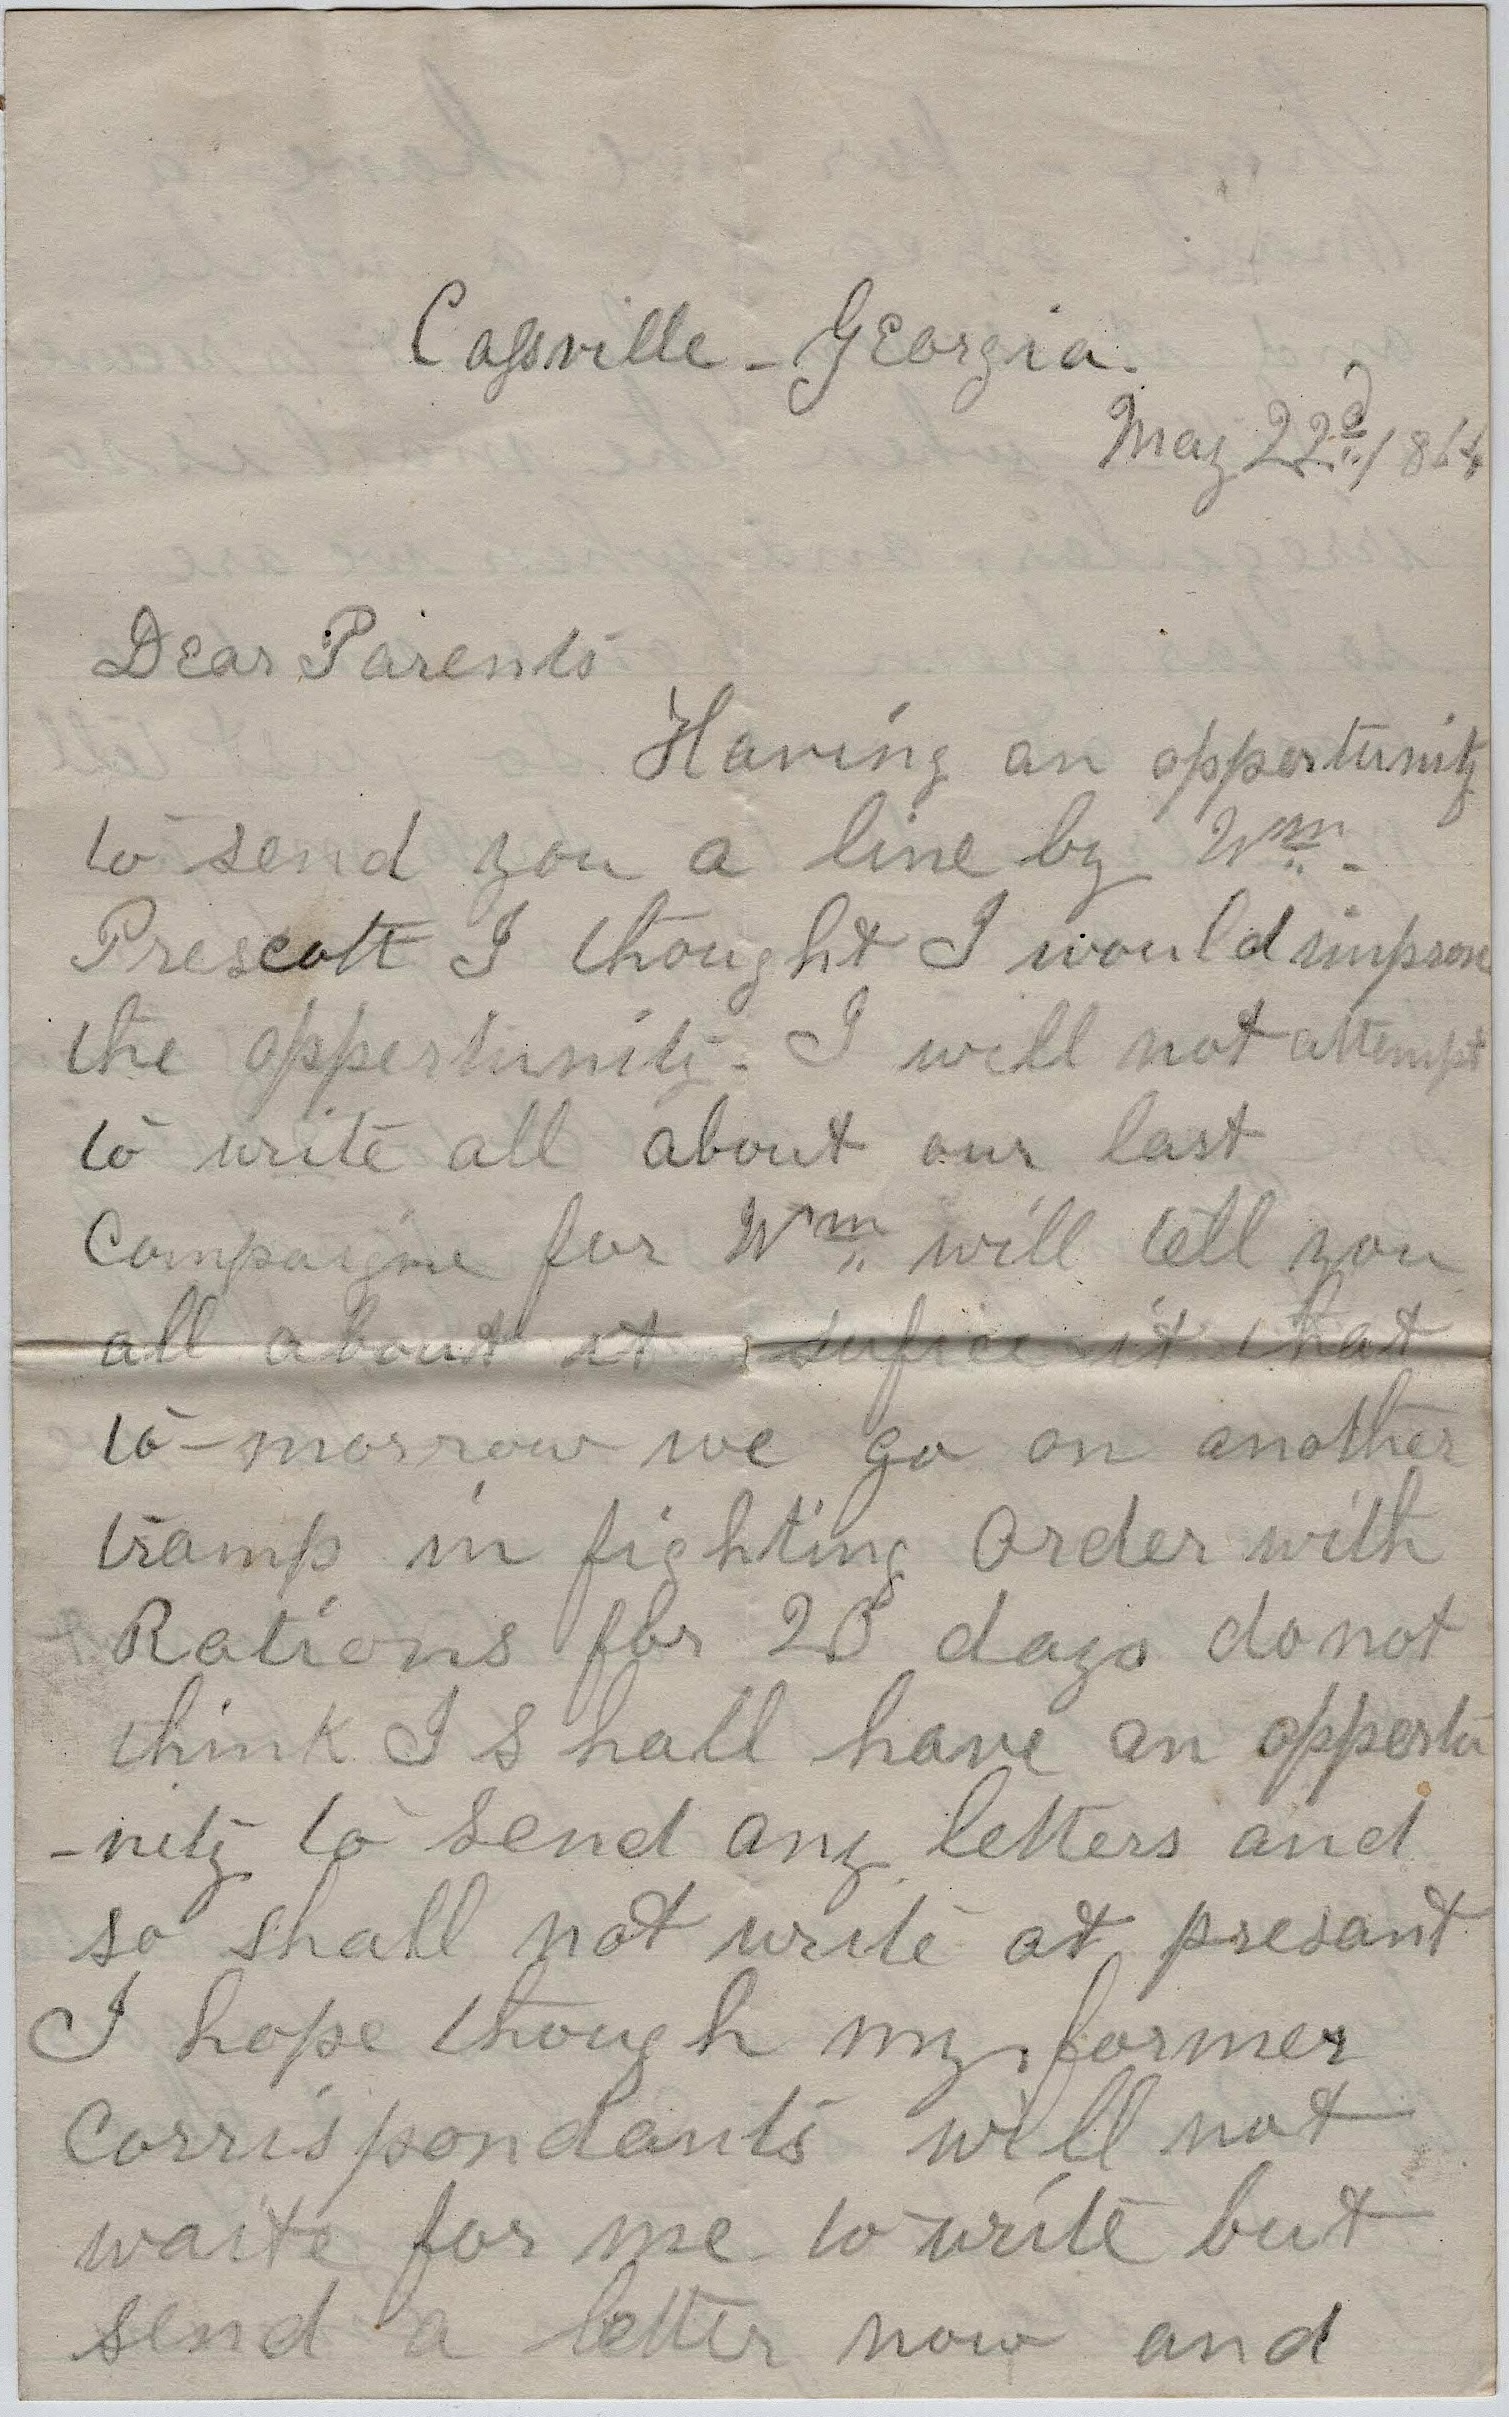 Cassville - Georgia.
May 22d, 1864
Dear Parents
Having an oppertunity
to send you a line by Wm.
Prescott I thought I would improve
the oppertunity - I will not attempt
to write all about our last
Campaigne for Wm. will tell you
all about it sufice it that
to-morrow we go on another
tramp in fighting order with
Rations for 20 days do not
think I shall have an oppertu
-nity to send any letters and
so shall not write at presant
I hope though my former
Corrispondants will not
waite for me to write but
send a letter now and